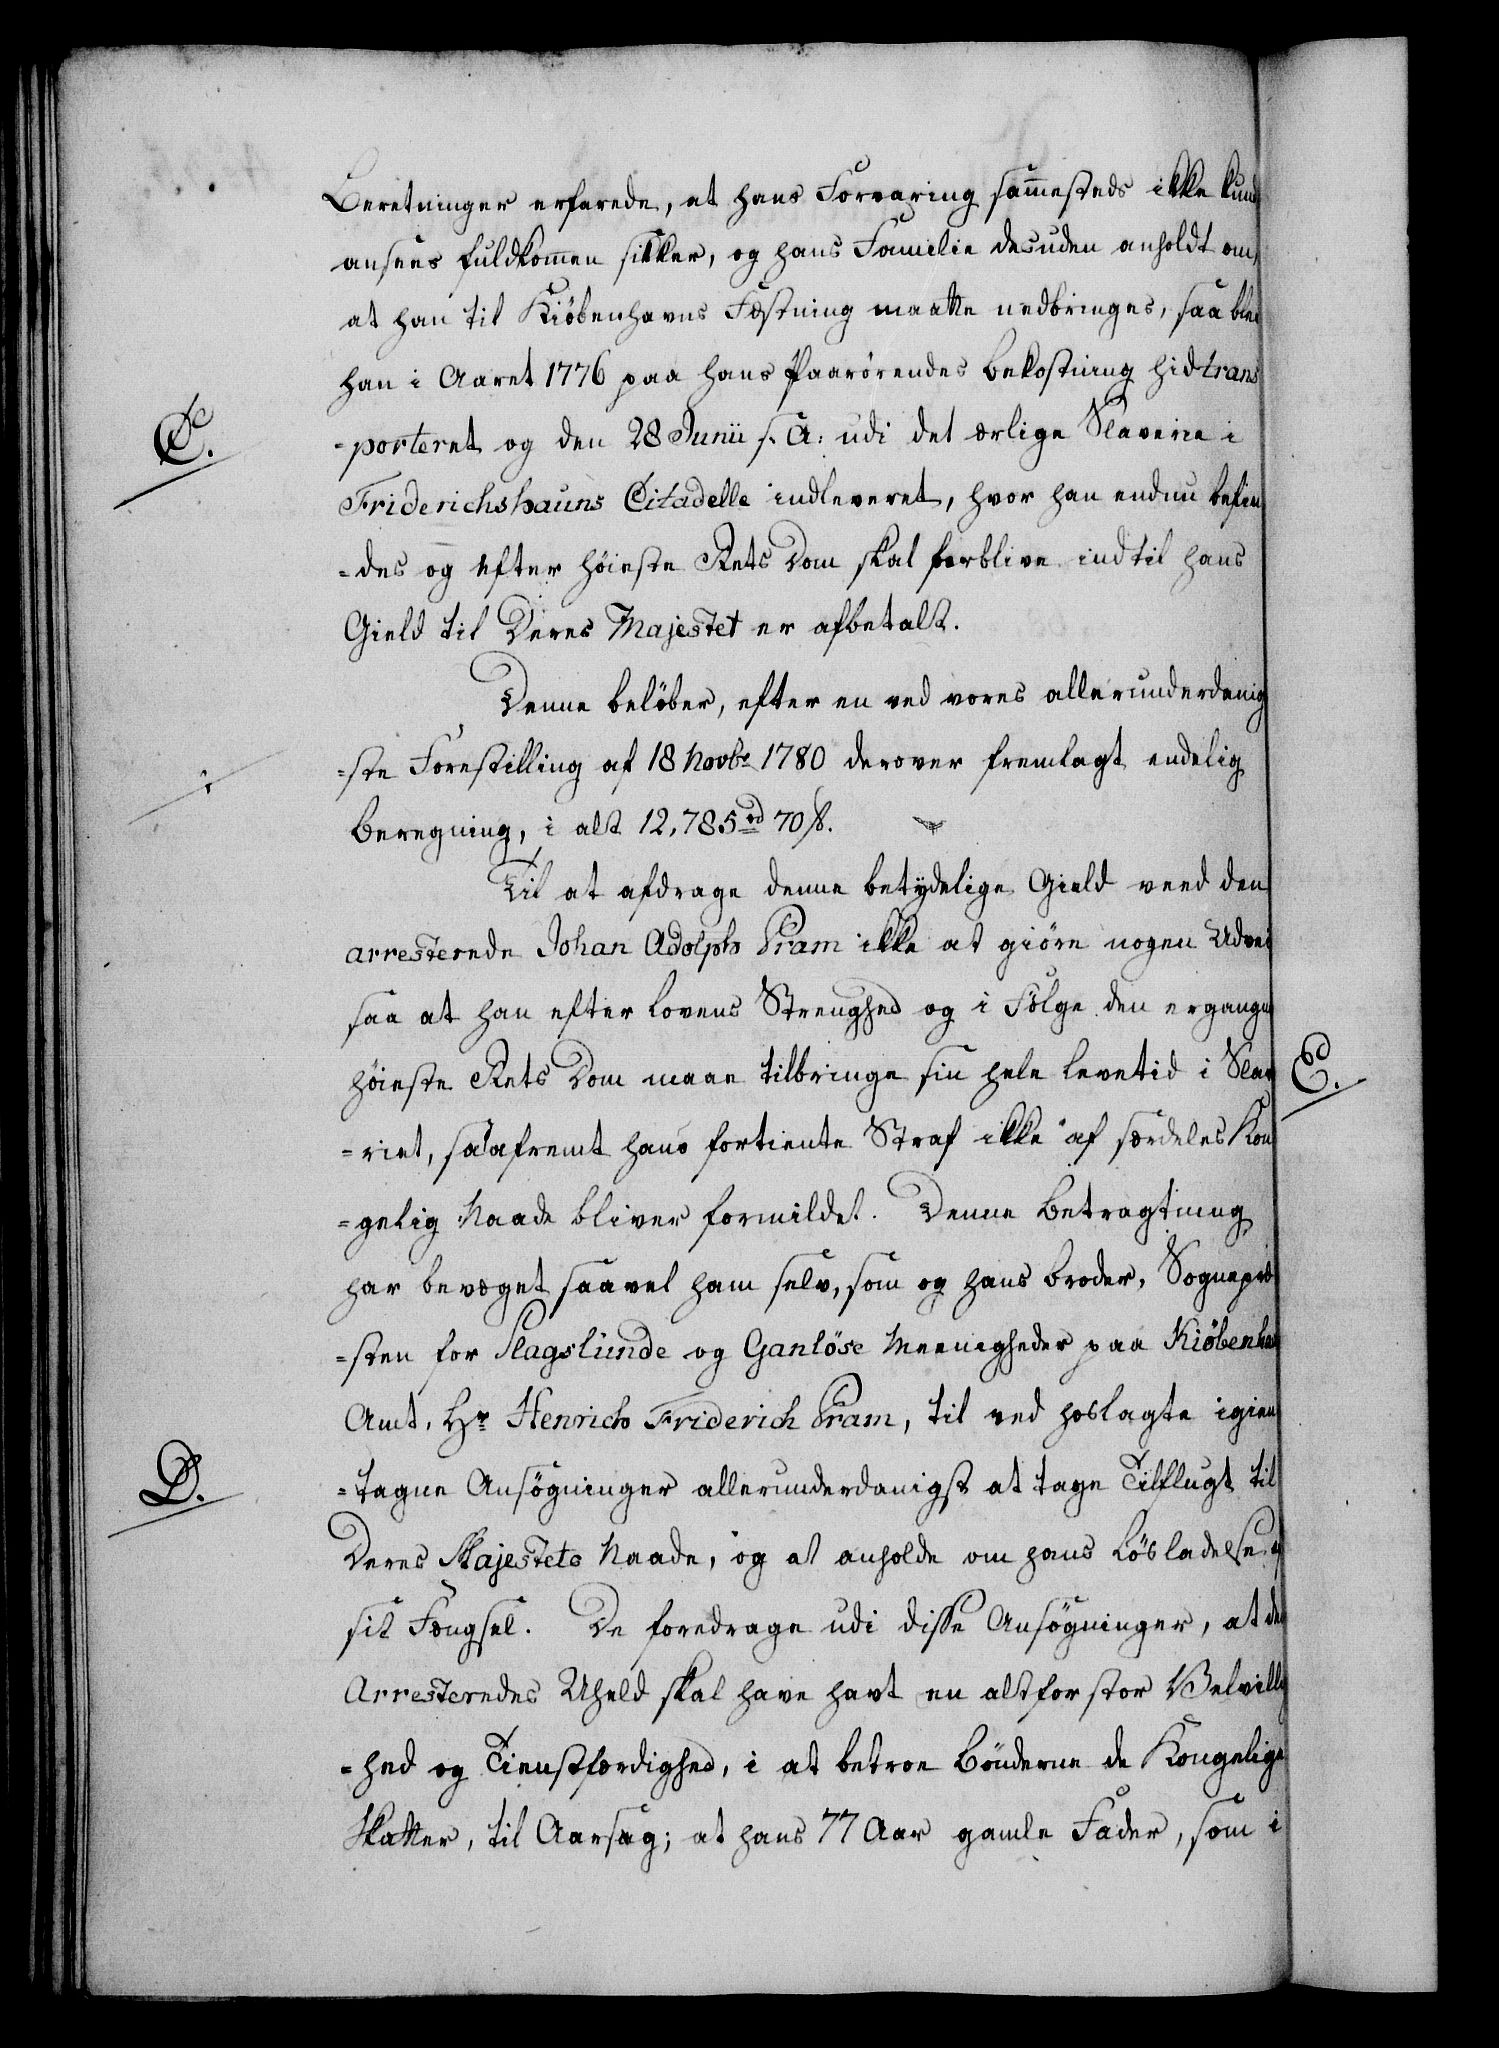 Beretninger erfarede, at hans Forvaring sammesteds ikke kund
ansees fuldkommen sikker, og hans Familie desuden anholdt om,
at han til Kiöbenhavns Fæstning maatte nedbringes, saa blev
han i Aaret 1776 paa hans Paarörendes Bekostning hidtrans
C.
=porteret og den 28 Junii s. A: udi det ærlige Slaverie i
Friderichshauns Citadelle indleveret, hvor han endnu befin
=des og efter höieste Rets Dom skal forblive indtil hans
Gield til Deres Majestet er afbetalt.
Denne belöber, efter en ved vores allerunderdanig
=ste Forestilling af 18 Novbr 1780 derover fremlagt endelig
Beregning, i alt 12,785 rd 70 s.
Til at afdrage denne betydelige Gield veed den
arresterede Johan Adolph Pram ikke at giöre nogen Udvei
saa at han efter Lovens Strenghed og i Fölge den ergangne
höieste Rets Dom maae tilbringe sin hele Levetid i Slav
E.
=riet, saafremt hans fortiente Straf ikke af særdeles Kon
=gelig Naade bliver formildet. Denne Betragtning
har bevæget saavel ham selv, som og hans Broder, Sognepræ
=sten for Slagslunde og Ganlöse Meenigheder paa Kiöbenhav
Amt, Hr Henrich Friderich Pram, til ved hoslagte igien
D.
=tagne Ansögninger allerunderdanigst at tage Tilflugt til
Deres Majestets Naade, og at anholde om hans Lösladelse af
sit Fængsel. De foredrage udi disse Ansögninger, at den
Arresteredes Uheld skal have havt en altfor stor Velvillig
=hed og Tienstfærdighed, i at betroe Bönderne de Kongelige
Skatter, til Aarsag; at hans 77 Aar gamle Fader, som i